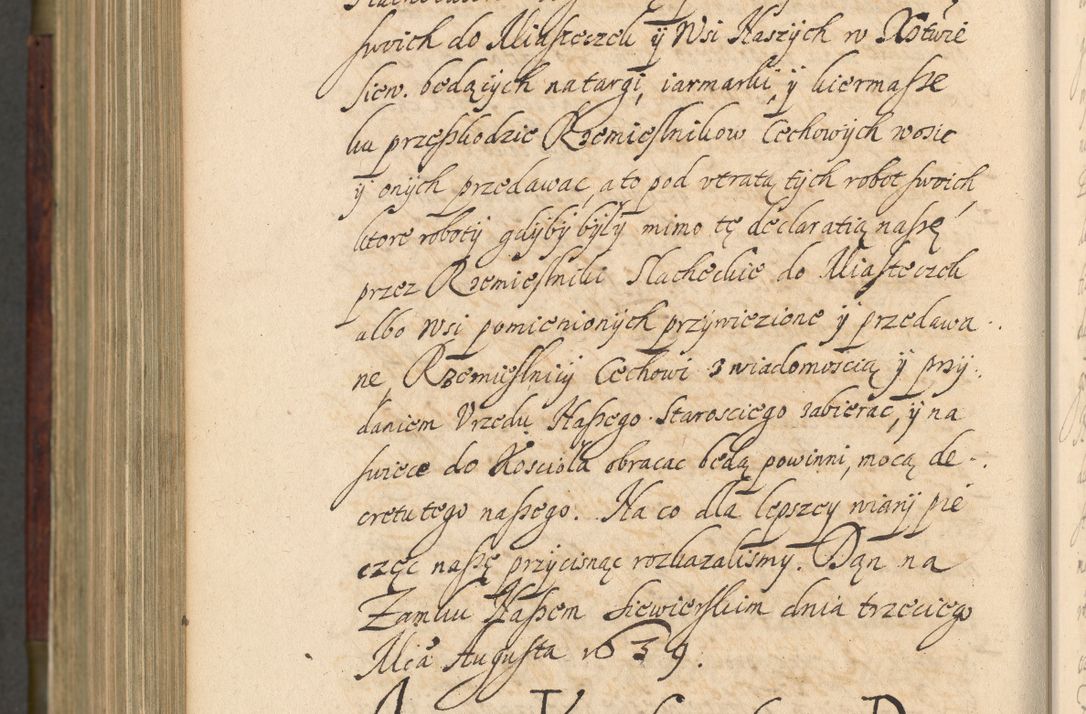 swoich do Miasteczek ÿ Wsi Naszych w Xstwie
Siew. będących na targi, iarmarki, ÿ kiermasze
ku przeszkodzie Rzemieslnikow Cechowych wozic
ÿ onÿch przedawac, a to pod vtratą tÿch robot swoich,
ktore robotÿ gdÿbÿ bÿłÿ mimo tę declaratią naszę
przez Rzemieslniki Slacheckie do Miasteczek
albo Wsi pomienionÿch przÿwiezione ÿ przedawa-
ne, Rzemieslnicÿ Cechowi z wiadomoscią ÿ przÿ-
daniem Vrzędu Naszego Staroscięgo zabierac, ÿ na
swiece do Kosciola obracac będą powinni, mocą de-
cretu tego naszego. Na co dla lepszeÿ wiarÿ pie
częc naszę przÿcisnąc rozkazalismÿ. Dąn na
Zamku Naszem Siewierskim dnia trzeciego
Mca Augusta 1639.